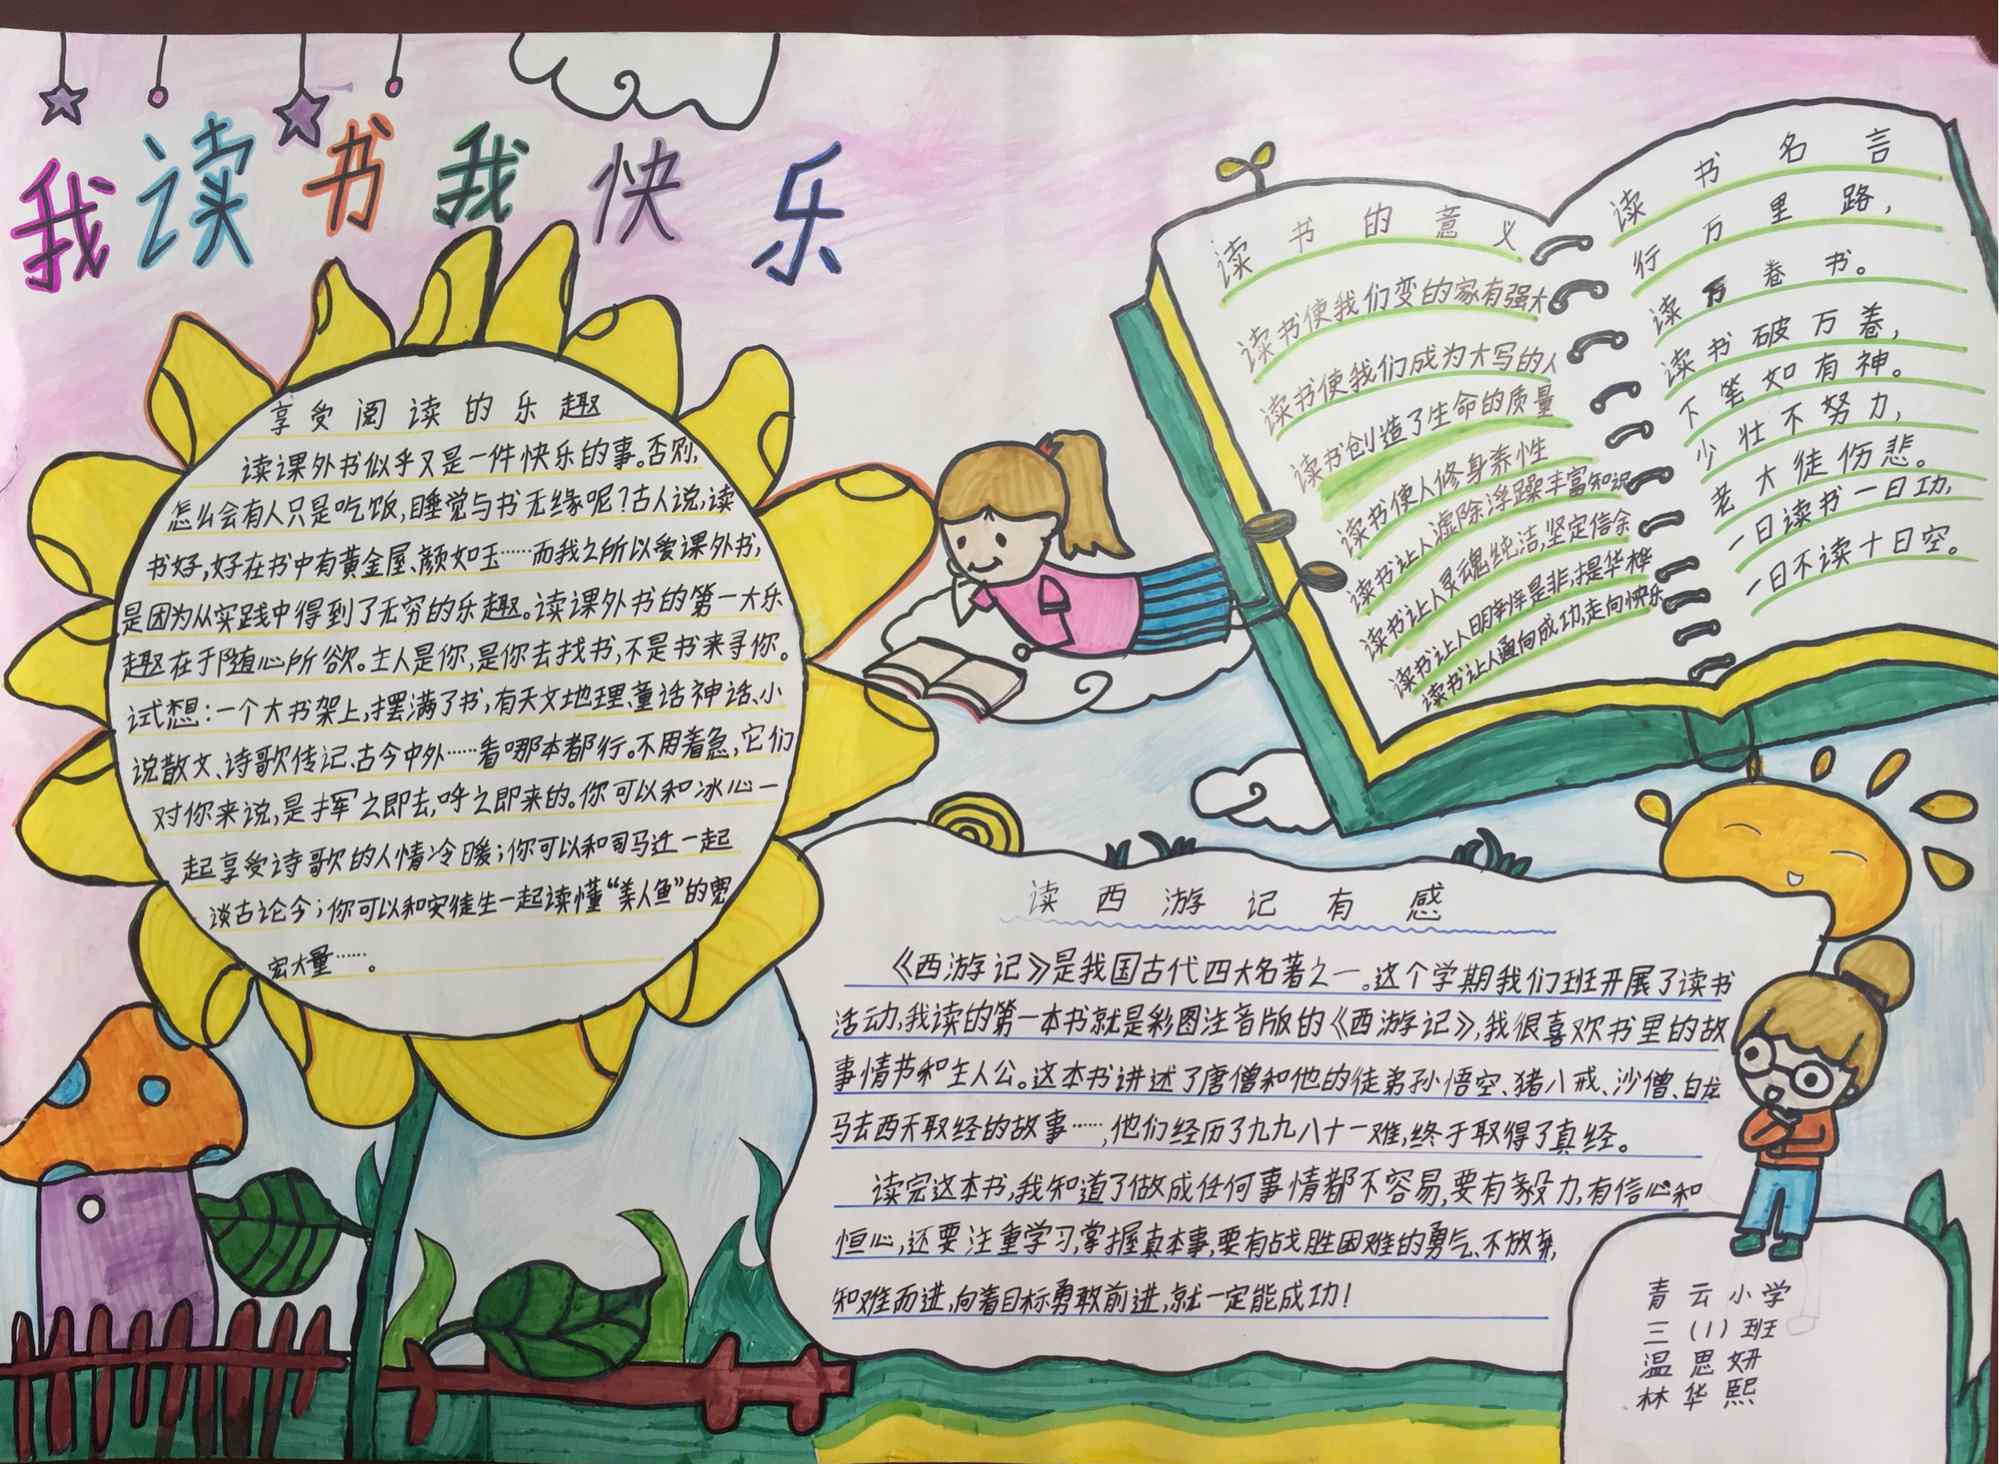 我读书我快乐
享受阅读的乐趣
读课外书似乎又是一件快乐的事。否则,
怎么会有人只是吃饭,睡觉与书无缘呢?古人说,读
书好,好在书中有黄金屋、颜如玉……而我之所以爱课外书,
是因为从实践中得到了无穷的乐趣。读课外书的第一大乐
趣在于随心所欲。主人是你,是你去找书,不是书来寻你。
试想:一个大书架上,摆满了书,有天文地理、童话神话、小
说散文、诗歌传记、古今中外……看哪本都行。不用着急,它们
对你来说,是挥之即去,呼之即来的。你可以和冰心一
起享受诗歌的人情冷暖;你可以和司马迁一起
谈古论今;你可以和安徒生一起读懂“美人鱼”的宽
宏大量……。
读书的意义
读书使我们变的家有强大
读书使我们成为大写的人
读书创造了生命的质量
读书使人修身养性
读书让人虚除浮躁丰富知识
读书让人灵魂纯洁,坚定信余
读书让人明辨是非,提华桦
读书让人通向成功,走向快乐
读书名言
行万里路,
读万卷书。
读书破万卷,
下笔如有神。
少壮不努力,
老大徒伤悲。
一日读书一日功,
一日不读十日空。
读西游记有感
《西游记》是我国古代四大名著之一。这个学期我们班开展了读书
活动,我读的第一本书就是彩图注音版的《西游记》,我很喜欢书里的故
事情节和主人公。这本书讲述了唐僧和他的徒弟孙悟空、猪八戒、沙僧、白龙
马去西天取经的故事……,他们经历了九九八十一难,终于取得了真经。
读完这本书,我知道了做成任何事情都不容易,要有毅力,有信心和
恒心,还要注重学习,掌握真本事,要有战胜困难的勇气、不放弃,
知难而进,向着目标勇敢前进,就一定能成功!
青云小学
三(1)班
温思妍
林华熙